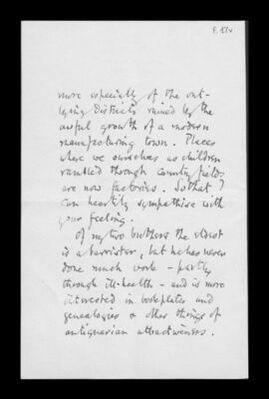 more especially of the out-
lying districts ruined by the
awful growth of a modern
manufacturing town. Places
where we ourselves as children
rambled through country fields
are now factories. So that I
can heartily sympathise with
your feeling.
Of my two brothers the eldest
is a barrister, but he has never
done much work - partly
through ill-health - and is more
interested in bookplates and
genealogies & other things of
antiquarian attractiveness.